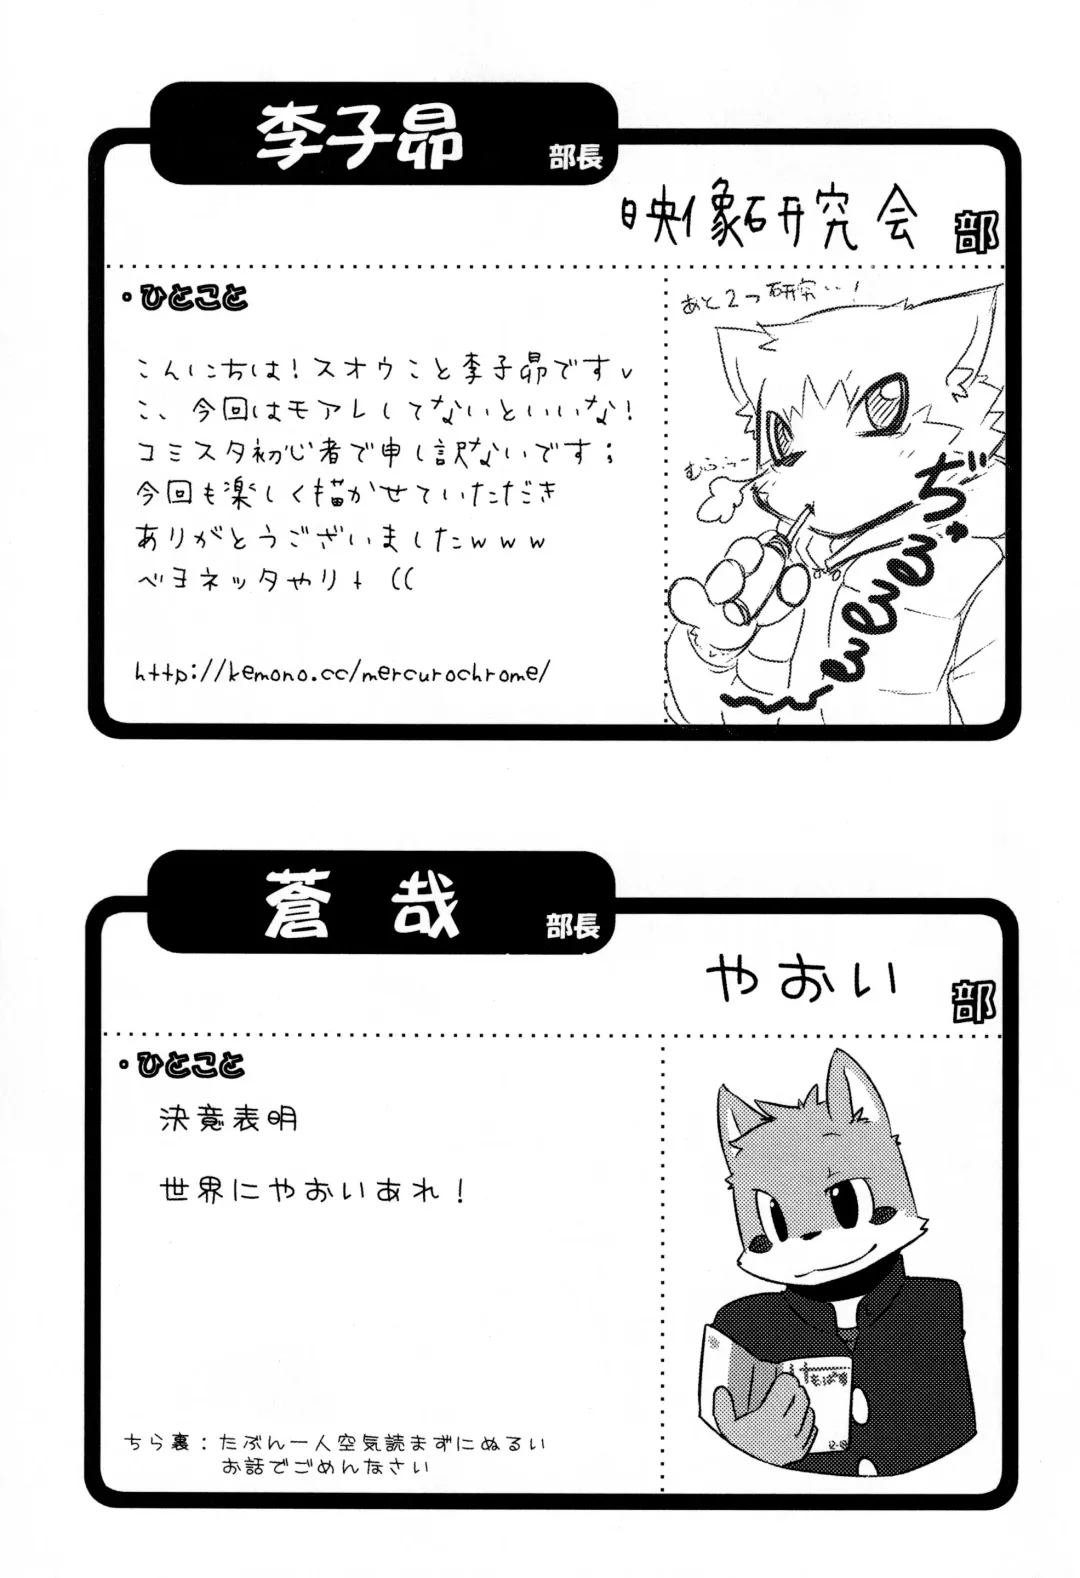 李子昴 部長
映像研究会 部
・ひとこと
こんにちは！スオウこと李子昴です
こ、今回はモアレしてないといいな！
コミスタ初心者で申し訳ないです；
今回も楽しく描かせていただき
ありがとうございましたwww
ベヨネッタやりｔ（（
http://kemono.cc/mercurochrome/
あと2つ研究…！
ぢゅ
蒼哉 部長
やおい 部
・ひとこと
決意表明
世界にやおいあれ！
ちら裏：たぶん一人空気読まずにぬるい
お話でごめんなさい
けもぱす